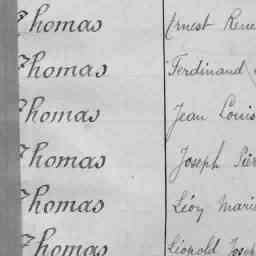 Thomas Ernest René
Thomas Ferdinand
Thomas Jean Louis
Thomas Joseph Pier
Thomas Léon Marie
Thomas Léopold Josep